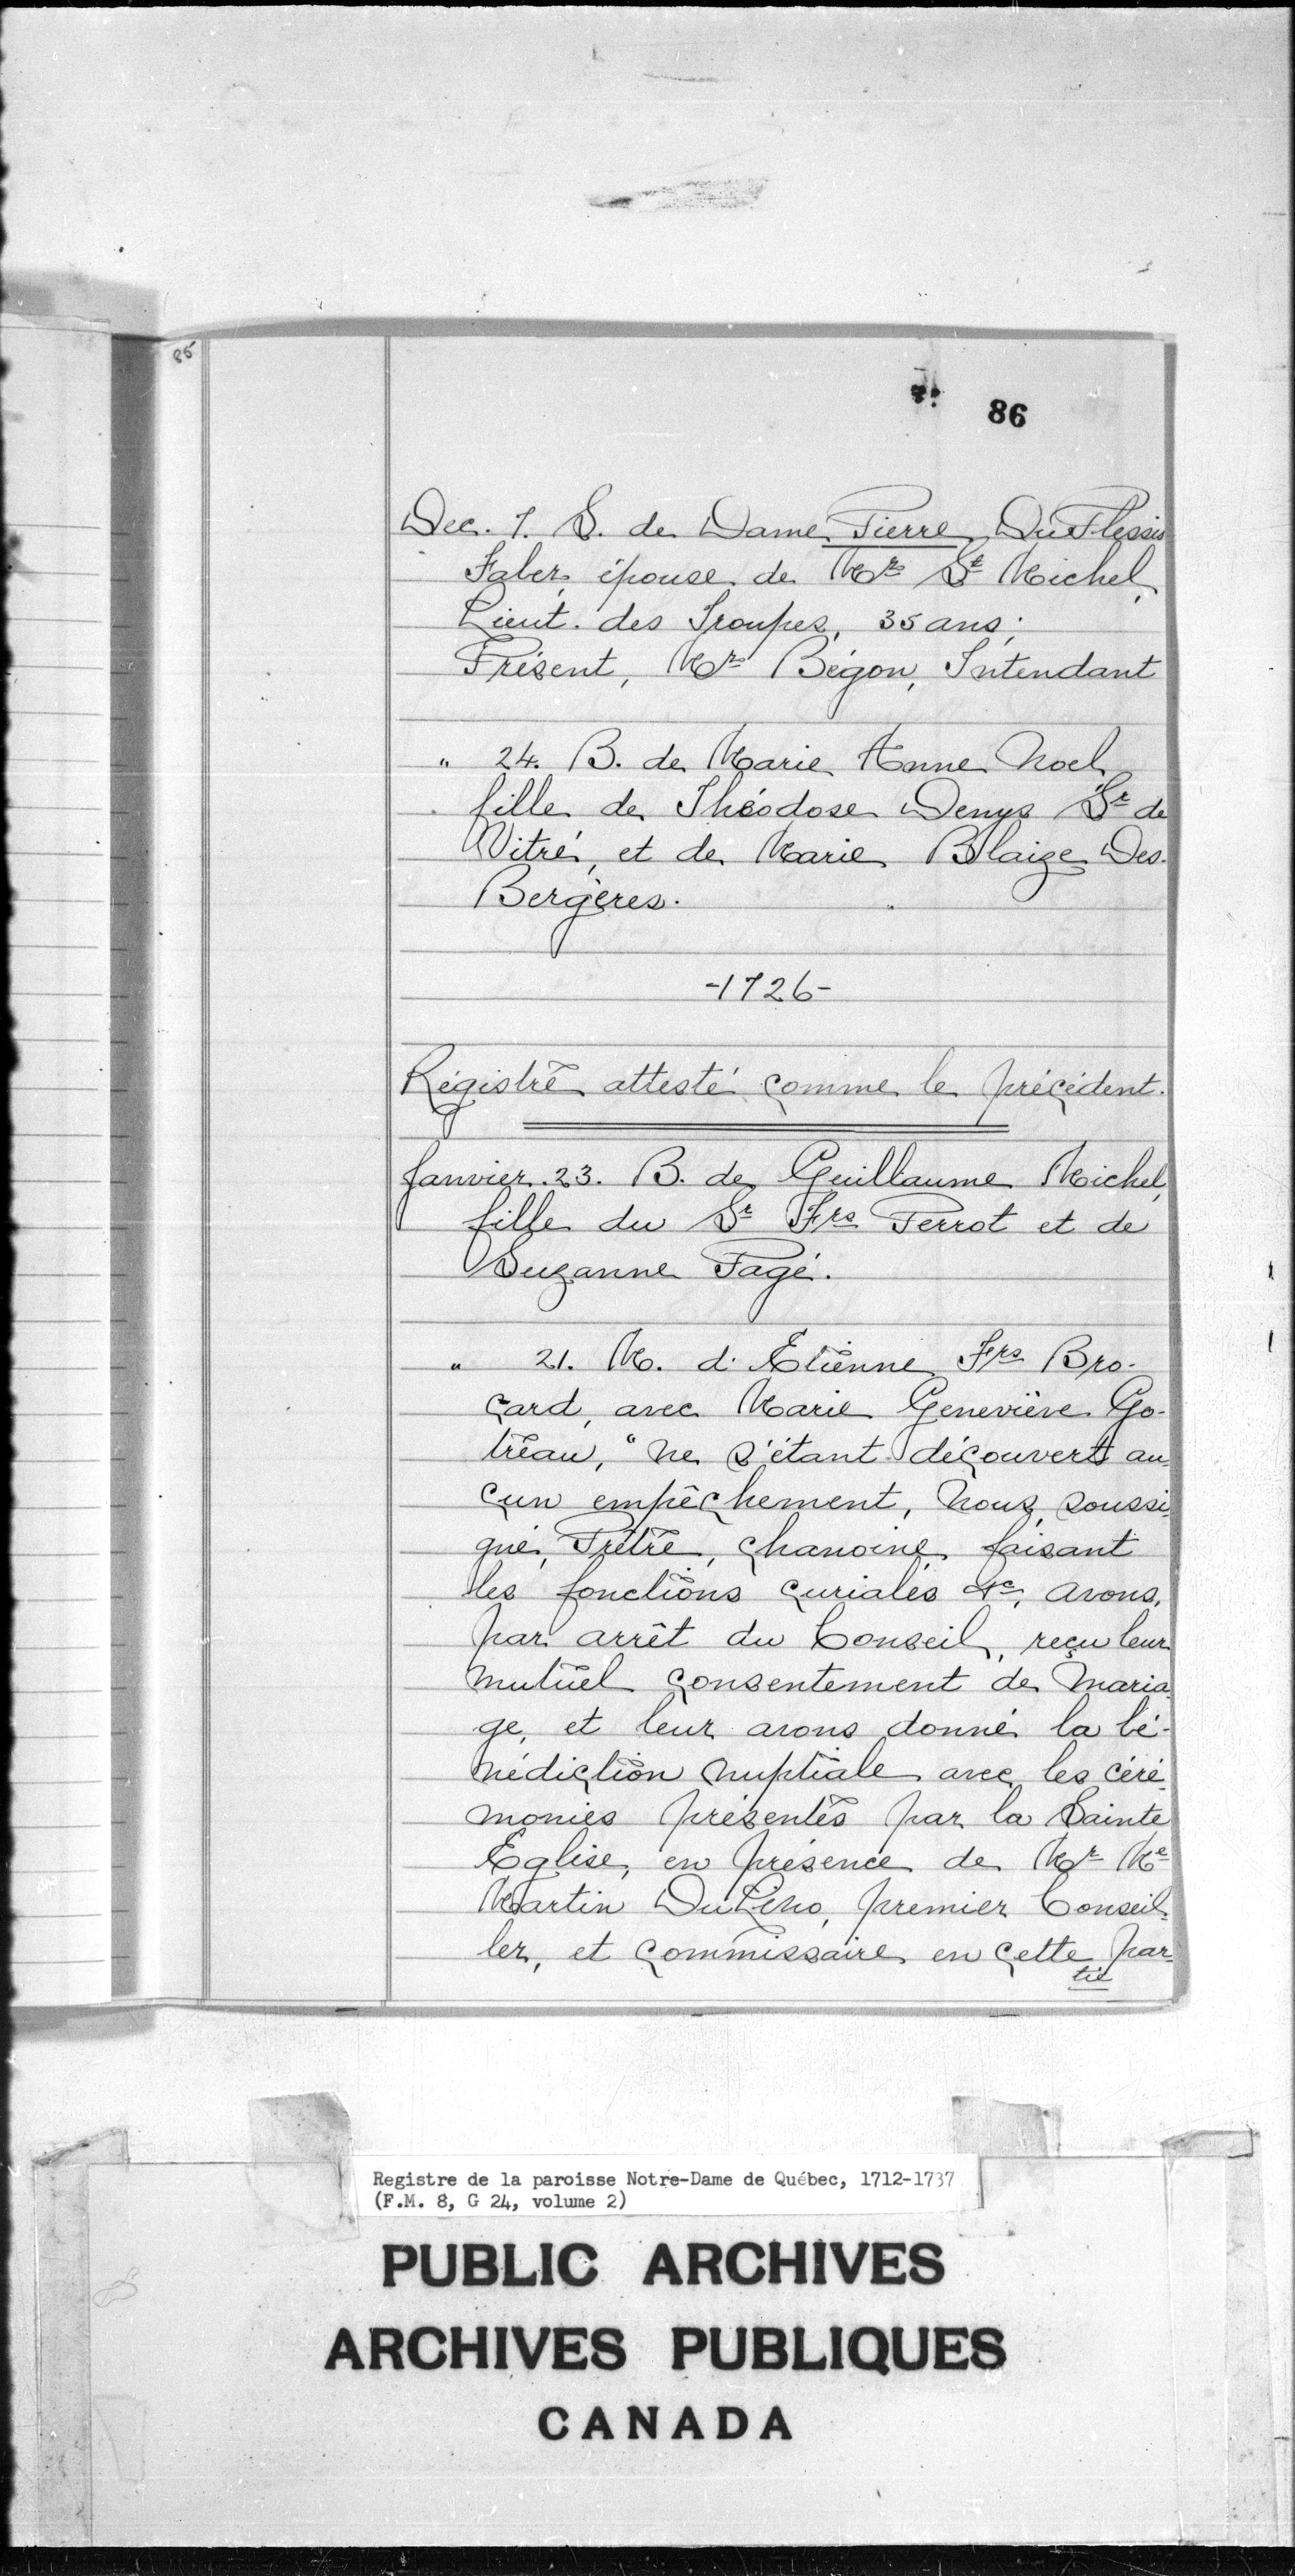 85
86
Dec. 7. S. de Dame Pierre DuPlessis
Faber, épouse de Mr St Michel,
Lieut. des Troupes, 35 ans;
Présent, Mr Bégon, Intendant
" 24. B. de Marie Anne Noel
fille de Théodose Denys Sr de
Vitré, et de Marie Blaize Des-
Bergères.
-1726-
Régistre attesté comme le précédent.
Janvier. 23. B. de Guillaume Michel,
fille du Sr Frs Perrot et de
Suzanne Pagé.
" 21. M. d'Etienne Frs Bro-
card, avec Marie Geneviève Go-
treau, "ne s'étant découvert au-
cun empêchement, Nous, soussi-
gné, Prêtre, chanoine faisant
les fonctions curiales &c, avons,
par arrêt du Conseil, reçu leur
mutuel consentement de maria-
ge, et leur avons donné la bé-
nédiction nuptiale avec les céré-
monies présentés par la Sainte
Eglise, en présence de Mr Me
Martin DuLino, premier Conseil-
ler, et commissaire en cette par-
tie
Registre de la paroisse Notre-Dame de Québec, 1712-1737
(F.M. 8, G 24, volume 2)
PUBLIC ARCHIVES
ARCHIVES PUBLIQUES
CANADA